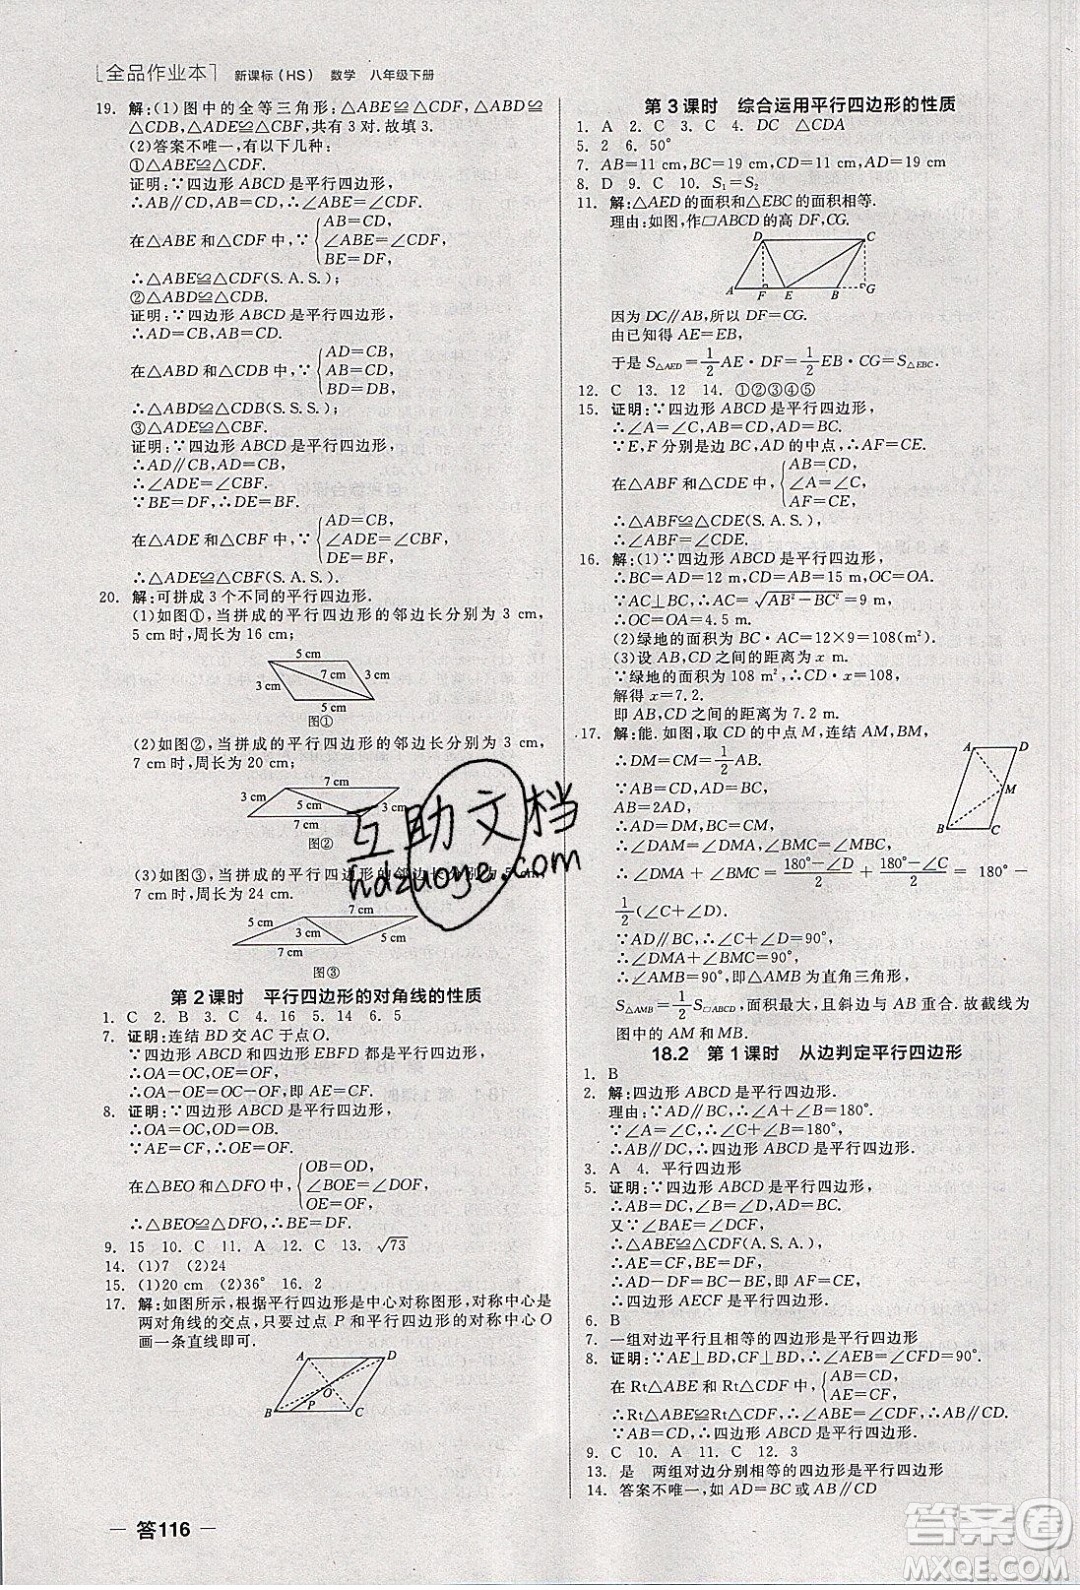 [全品作业本] 新课标(HS) 数学 八年级下册
19. 解:(1)图中的全等三角形:△ABE≌△CDF,△ABD≌
△CDB,△ADE≌△CBF,共有3对.故填3.
(2)答案不唯一,有以下几种:
①△ABE≌△CDF.
证明:∵四边形ABCD是平行四边形,
∴AB∥CD,AB=CD,∴∠ABE=∠CDF.
在△ABE和△CDF中,∵{AB=CD,
∠ABE=∠CDF,
BE=DF,
∴△ABE≌△CDF(S.A.S.);
②△ABD≌△CDB.
证明:∵四边形ABCD是平行四边形,
∴AB=CD,AD=BC.
在△ABD和△CDB中,∵{AD=CB,
AB=CD,
BD=DB,
∴△ABD≌△CDB(S.S.S.);
③△ADE≌△CBF.
证明:∵四边形ABCD是平行四边形,
∴AD∥BC,AD=BC,
∴∠ADE=∠CBF.
∵BE=DF,∴BF=DE.
在△ADE和△CBF中,∵{AD=CB,
∠ADE=∠CBF,
DE=BF,
∴△ADE≌△CBF(S.A.S.).
20. 解:可拼成3个不同的平行四边形.
(1)如图①,当拼成的平行四边形的邻边长分别为3 cm,
5 cm时,周长为16 cm;
5 cm
3 cm 7 cm 3 cm
5 cm
图①
(2)如图②,当拼成的平行四边形的邻边长分别为3 cm,
7 cm时,周长为20 cm;
7 cm
3 cm
7 cm
图②
(3)如图③,当拼成的平行四边形的邻边长分别为5 cm,
7 cm时,周长为24 cm.
7 cm
5 cm 3 cm 5 cm
7 cm
图③
第2课时 平行四边形的对角线的性质
1. C 2. B 3. C 4. 16 5. 14 6. 5
7. 证明:连结BD交AC于点O.
∵四边形ABCD和四边形EBFD都是平行四边形,
∴OA=OC,OE=OF,
∴OA-OE=OC-OF,即AE=CF.
8. 证明:∵四边形ABCD是平行四边形,
∴OA=OC,OD=OB.
∵AE=CF,∴OE=OF.
在△BEO和△DFO中,∵{OB=OD,
∠BOE=∠DOF,
OE=OF,
∴△BEO≌△DFO,∴BE=DF.
9. 15 10. C 11. A 12. C 13. √73
14. (1)7 (2)24
15. (1)20 cm (2)36° 16. 2
17. 解:如图所示,根据平行四边形是中心对称图形,对称中心是
两对角线的交点,只要过点P和平行四边形的对称中心O
画一条直线即可.
A D
O
B P C
第3课时 综合运用平行四边形的性质
1. A 2. C 3. C 4. DC △CDA
5. 2 6. 50°
7. AB=11 cm,BC=19 cm,CD=11 cm,AD=19 cm
8. D 9. C 10. S₁=S₂
11. 解:△AED的面积和△EBC的面积相等.
理由:如图,作□ABCD的高DF,CG.
D C
A F E B G
因为DC∥AB,所以DF=CG.
由已知得AE=EB,
于是S△AED=1/2AE·DF=1/2EB·CG=S△EBC.
12. C 13. 12 14. ①②③④⑤
15. 证明:∵四边形ABCD是平行四边形,
∴∠A=∠C,AB=CD,AD=BC.
∵E,F分别是边BC,AD的中点,∴AF=CE.
在△ABF和△CDE中,∵{AB=CD,
∠A=∠C,
AF=CE,
∴△ABF≌△CDE(S.A.S.),
∴∠ABF=∠CDE.
16. 解:(1)∵四边形ABCD是平行四边形,
∴BC=AD=12 m,CD=AB=15 m,OC=OA.
∵AC⊥BC,∴AC=√AB²-BC²=9 m,
∴OC=OA=4.5 m.
(2)绿地的面积为BC·AC=12×9=108(m²).
(3)设AB,CD之间的距离为x m.
∵绿地的面积为108 m²,∴CD·x=108,
解得x=7.2.
即AB,CD之间的距离为7.2 m.
17. 解:能.如图,取CD的中点M,连结AM,BM,
∴DM=CM=1/2AB.
∵AB=CD,AD=BC,
AB=2AD,
∴∠DMA=∠DAM,∠BMC=∠MBC,
∴∠DMA+∠BMC=180°-∠D/2+180°-∠C/2=180°-
1/2(∠C+∠D).
∵AD∥BC,∴∠C+∠D=180°,
∴∠DMA+∠BMC=90°,
∴∠AMB=90°,即△AMB为直角三角形,
S△AMB=1/2S□ABCD,面积最大,且斜边与AB重合.故截线为
图中的AM和MB.
A D
M
B C
18.2 第1课时 从边判定平行四边形
1. B
2. 解:四边形ABCD是平行四边形.
理由:∵AD∥BC,∴∠A+∠B=180°.
∵∠A=∠C,∴∠B+∠C=180°,
∴AB∥DC,∴四边形ABCD是平行四边形.
3. A 4. 平行四边形
5. 证明:∵四边形ABCD是平行四边形,
∴AD∥BC,AD=BC,∠B=∠D,AB=DC.
又∵∠BAE=∠DCF,
∴△ABE≌△CDF(A.S.A.),∴BE=DF,
∴AD-DF=BC-BE,即AF=CE,
∴四边形AECF是平行四边形.
6. B
7. 一组对边平行且相等的四边形是平行四边形
8. 证明:∵AE⊥BD,∴∠AEB=∠CFD=90°.
在Rt△ABE和Rt△CDF中,∵{AB=CD,
AE=CF,
∴Rt△ABE≌Rt△CDF,∴∠ABE=∠CDF,
∴AB∥CD,∴四边形ABCD是平行四边形.
9. C 10. A 11. C 12. 3
13. 是 两组对边分别相等的四边形是平行四边形
14. 答案不唯一,如AD=BC或AB∥CD
— 答116 —
互助文档
hdzuoye.com
答案圈
MXQE.COM